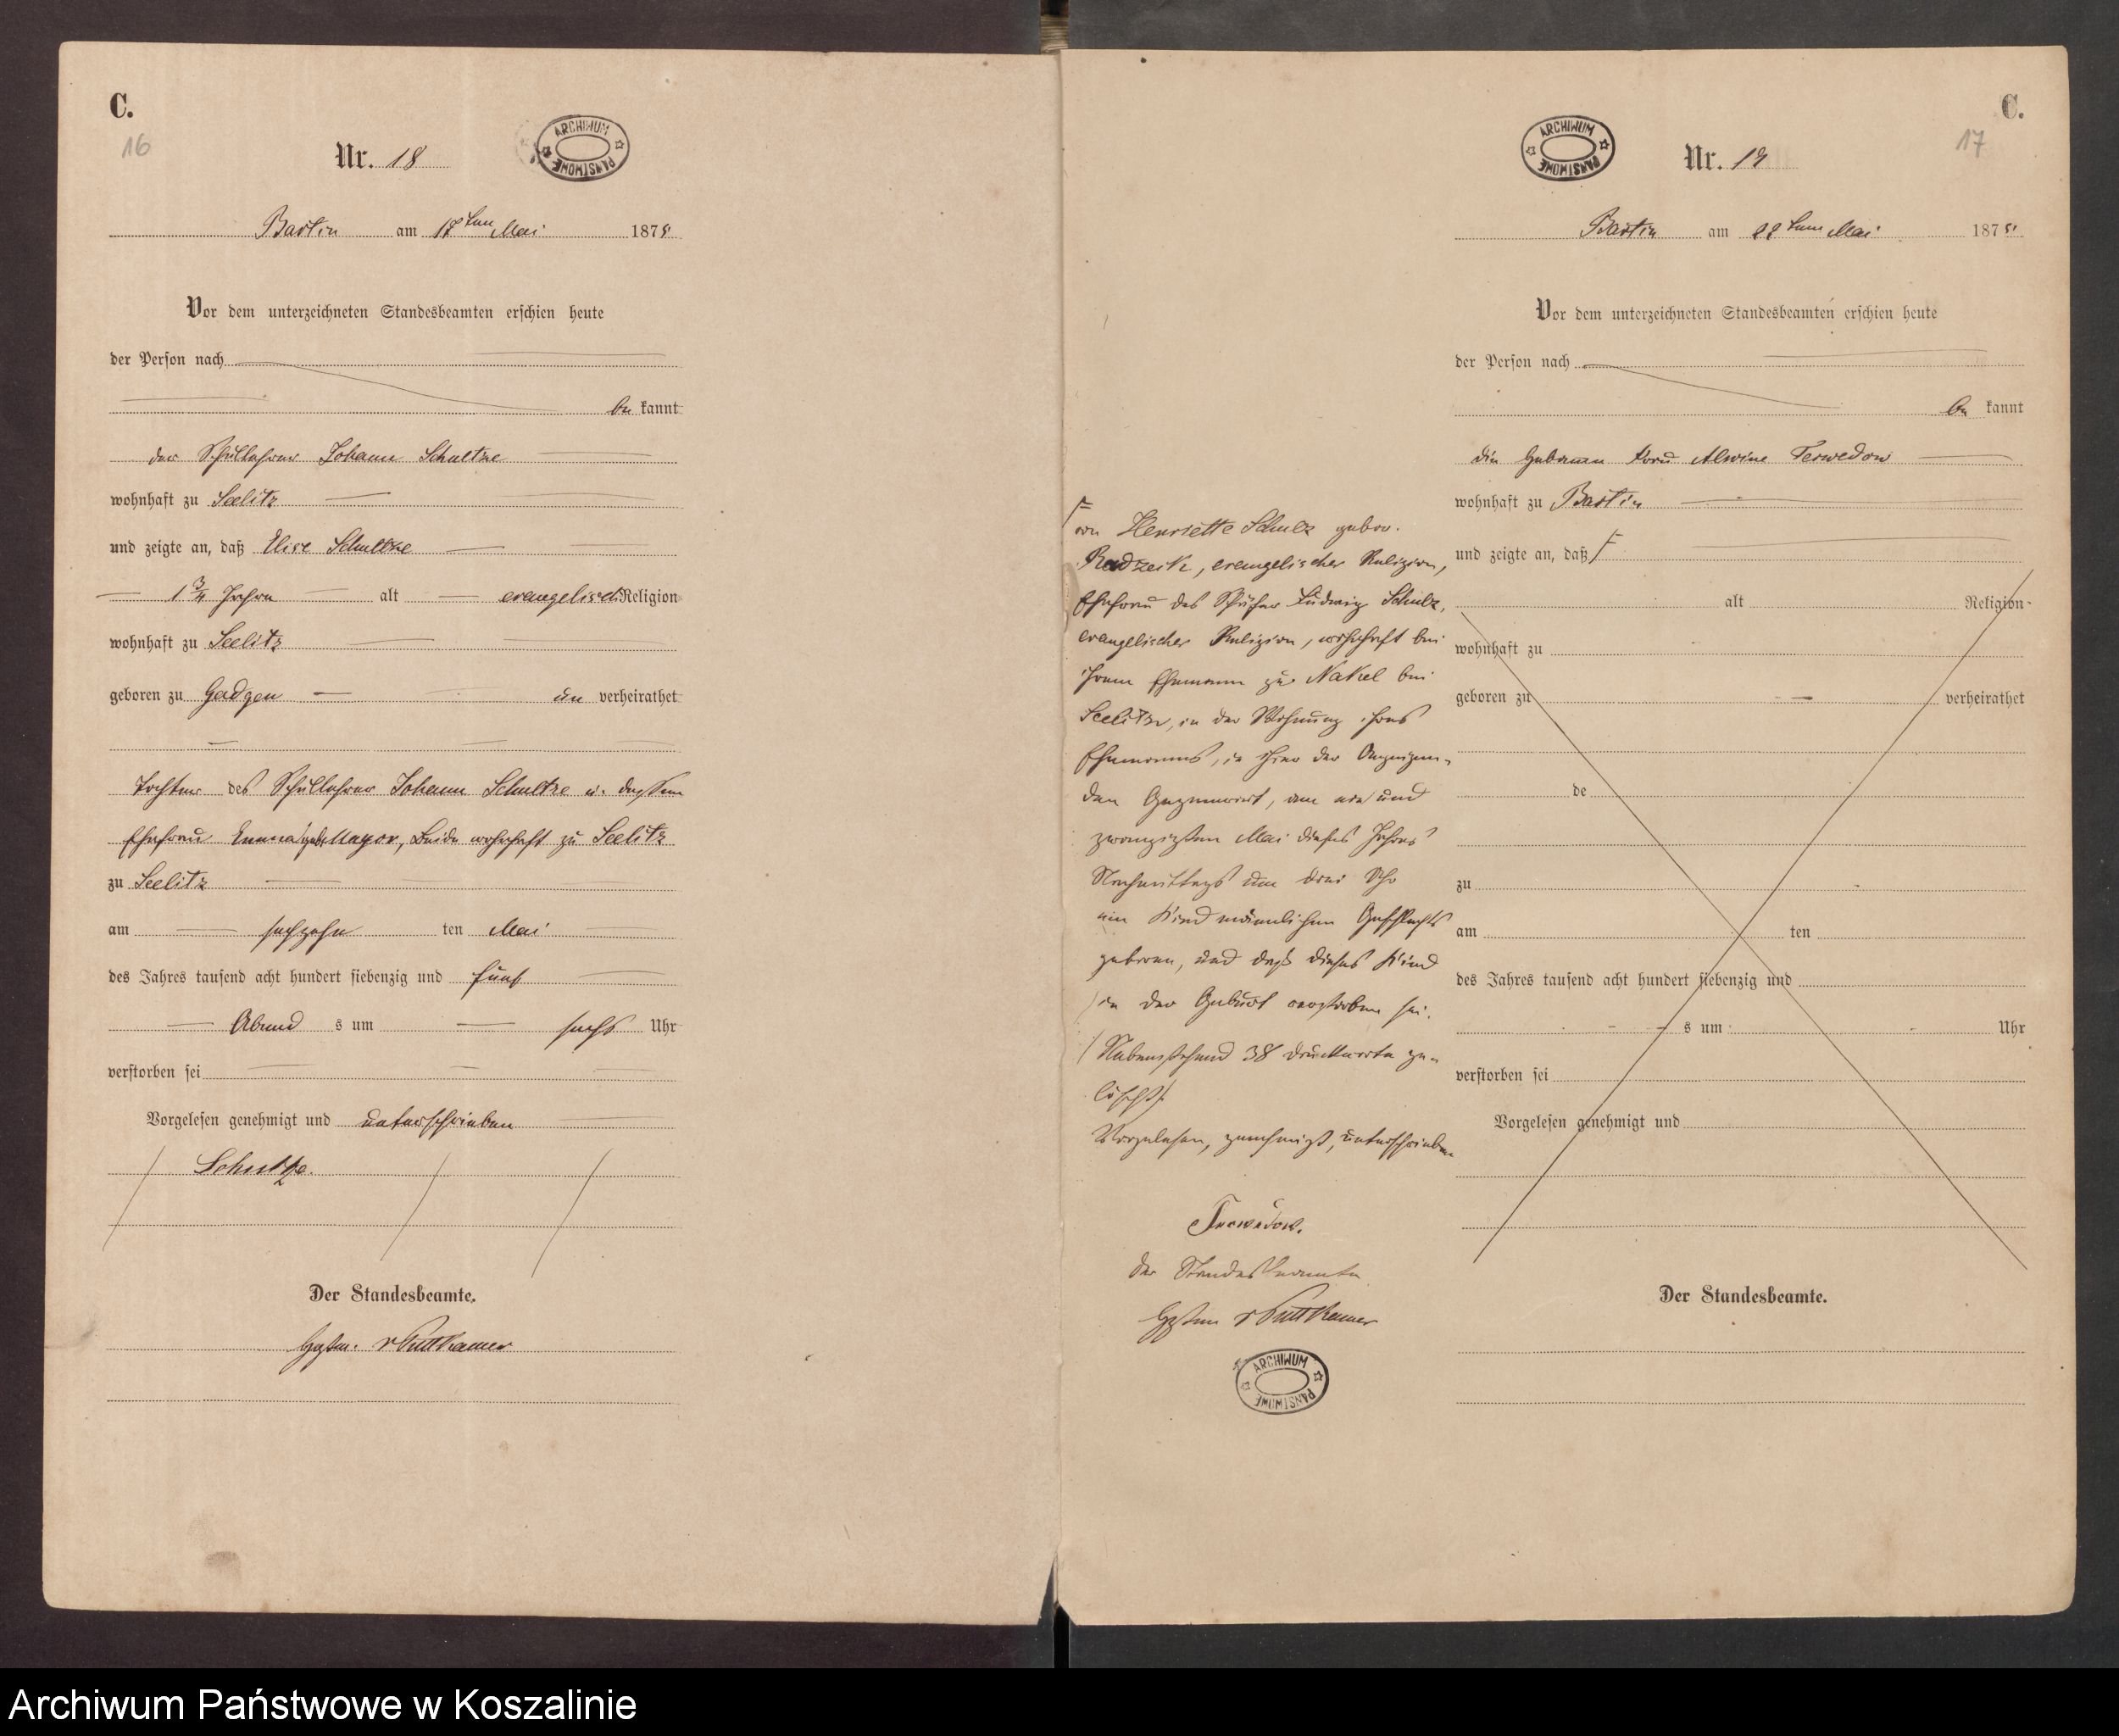 C.
16
Nr. 18
ARCHIWUM PAŃSTWOWE
Bartin am 17ten Mai 1875
Vor dem unterzeichneten Standesbeamten erschien heute
der Person nach
be kannt
der Schullehrer Johann Schultze
wohnhaft zu Seelitz
und zeigte an, daß Elise Schultze
1 3/4 Jahre alt evangelisch Religion
wohnhaft zu Seelitz
geboren zu Gadgen un verheirathet
Tochter des Schullehrer Johann Schultze u. dessen
Ehefrau Emma geb. Mayor, beide wohnhaft zu Seelitz
zu Seelitz
am sechzehn ten Mai
des Jahres tausend acht hundert siebenzig und fünf
Abend s um sechs Uhr
verstorben sei
Vorgelesen genehmigt und unterschrieben
Schultze.
Der Standesbeamte.
v Puttkamer
C.
17
Nr. 19
ARCHIWUM PAŃSTWOWE
Bartin am 22ten Mai 1875
Vor dem unterzeichneten Standesbeamten erschien heute
der Person nach
be kannt
die Hebamme Frau Alwine Terwedow
wohnhaft zu Bartin
und zeigte an, daß F
alt Religion
wohnhaft zu
geboren zu verheirathet
de
zu
am ten
des Jahres tausend acht hundert siebenzig und
s um Uhr
verstorben sei
Vorgelesen genehmigt und
Der Standesbeamte.
F
von Henriette Schulz gebor.
evangelischer Religion,
Ehefrau des Schäfer Ludwig Schulz,
evangelischer Religion, wohnhaft bei
ihrem Ehemann zu Nakel bei
Seelitz, in der Wohnung ihres
Ehemannes, in ihrer der Anzeigen-
den Gegenwart, am ein und
zwanzigsten Mai dieses Jahres
Nachmittags um drei Uhr
ein Kind männlichen Geschlechts
geboren, und daß dieses Kind
in der Geburt verstorben sei.
Nebenstehend 38 Druckworte ge-
löscht
Vorgelesen, genehmigt, unterschrieben
Terwedow.
der Standesbeamte
v Puttkamer
ARCHIWUM PAŃSTWOWE
Archiwum Państwowe w Koszalinie